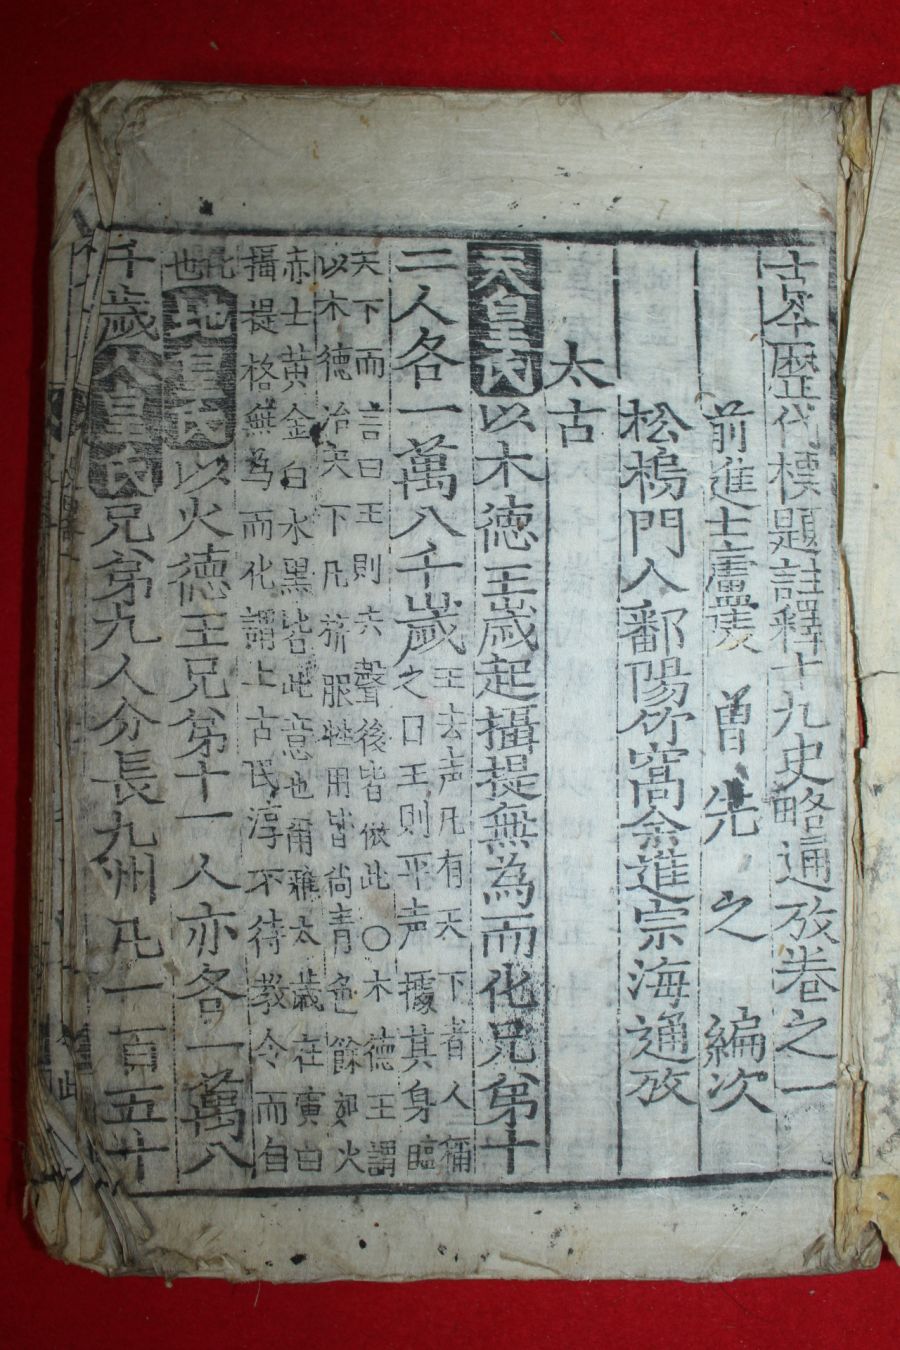 古今歷代標題註釋十九史略通攷卷之一
前進士廬陵 曽先之 編次
松塢門人鄱陽余進宗海通攷
太古
天皇氏以木德王歲起攝提無為而化兄弟十
二人各一萬八千歲
王去声凡有天下者人稱
之曰王則平声據其身臨
天下而言曰王則六聲後皆倣此○木德王謂
以木德治天下凡旂服牲用皆尙青色餘如火
赤土黃金白水黑皆此意也爾雅太歲在寅曰
攝提格無為而化謂上古民淳不待敎令而自
化
也
地皇氏以火德王兄弟十一人亦各一萬八
千歲人皇氏兄弟九人分長九州凡一百五十